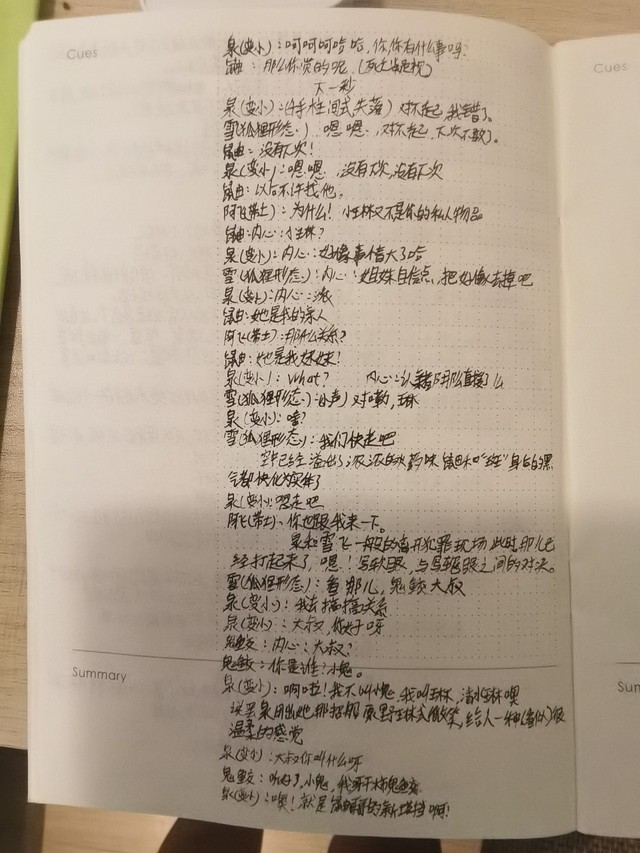 Cues
Cues
泉(变小)：呵呵呵哈哈，你，你有什么事吗
鼬：那么你赏的呢，(死亡凝视)
下一秒
泉(变小)：(手性间式失落) 对不起，我错了。
雪(狐狸形态)：嗯嗯，对不起，下次不敢了。
鼬：没有下次！
泉(变小)：嗯嗯，没有下次，没有下次
鼬：以后不许找他。
阿飞(带土)：为什么！小琳又不是你的私人物品
鼬：内心：小琳？
泉(变小)：内心：好像事情大了哈
雪(狐狸形态)：内心：姐妹自信点，把好像去掉吧
泉(变小)：内心：滚
鼬：她是我的家人
阿飞(带土)：那什么关系？
鼬：她是我妹妹！
泉(变小)：What？ 内心：认亲那么直接了么
雪(狐狸形态)：(小声) 对嘞，琳
泉(变小)：啥？
雪(狐狸形态)：我们快走吧
空中已经溢出了浓浓的火药味 鼬和“斑”身后的黑
气都快化成实体了
泉(变小)：嗯走吧
阿飞(带土)：你也跟我来一下。
泉和雪飞一般的离开犯罪现场 此时那儿已
经打起来了，嗯！写轮眼，与写轮眼之间的对决。
雪(狐狸形态)：看那儿，鬼鲛大叔
泉(变小)：我去搞搞关系
泉(变小)：大叔，你好呀
鬼鲛：内心：大叔？
Summary
Sum
鬼鲛：你是谁？小鬼。
泉(变小)：啊啦！我不叫小鬼，我叫琳，清水琳噢
说罢泉闭出她那招牌原野琳式微笑，给人一种(看似)很
温柔的感觉
泉(变小)：大叔你叫什么呀
鬼鲛：听好了，小鬼，我哥干柿鬼鲛
泉(变小)：噢！就是鼬哥哥的新搭档啊！